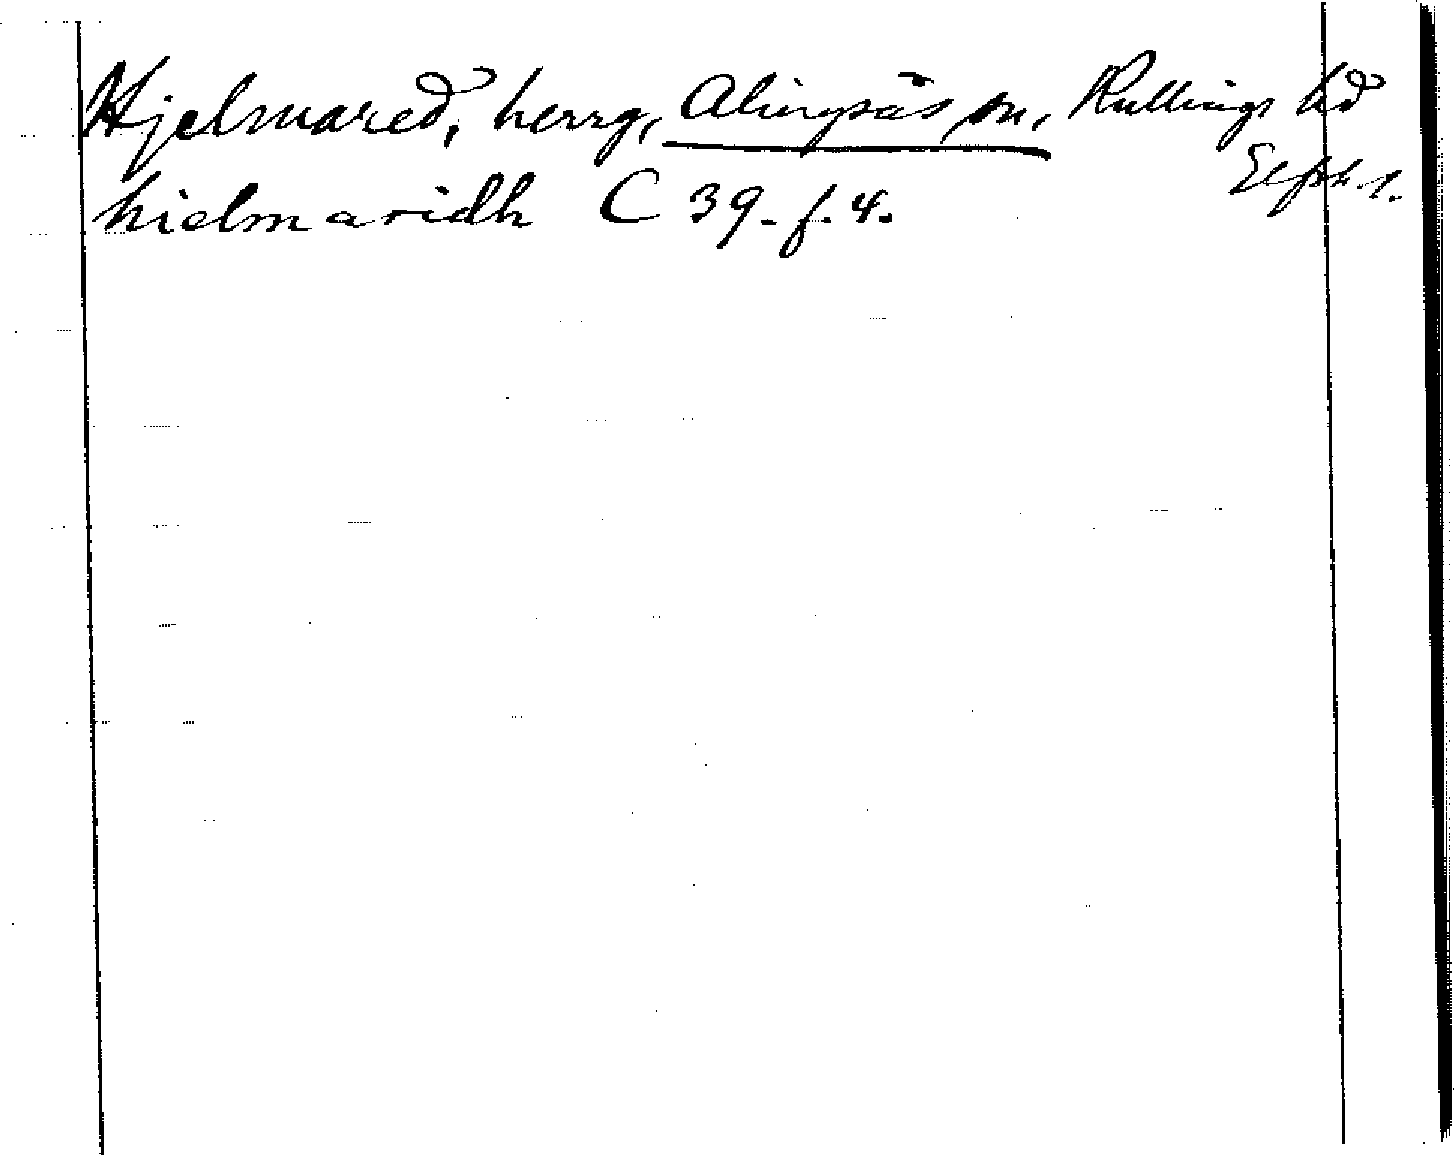 Hjelmared, herrg, Alingsås sn, Kullings hd
Elfsb. l.
hielmaridh C 39. f. 4.